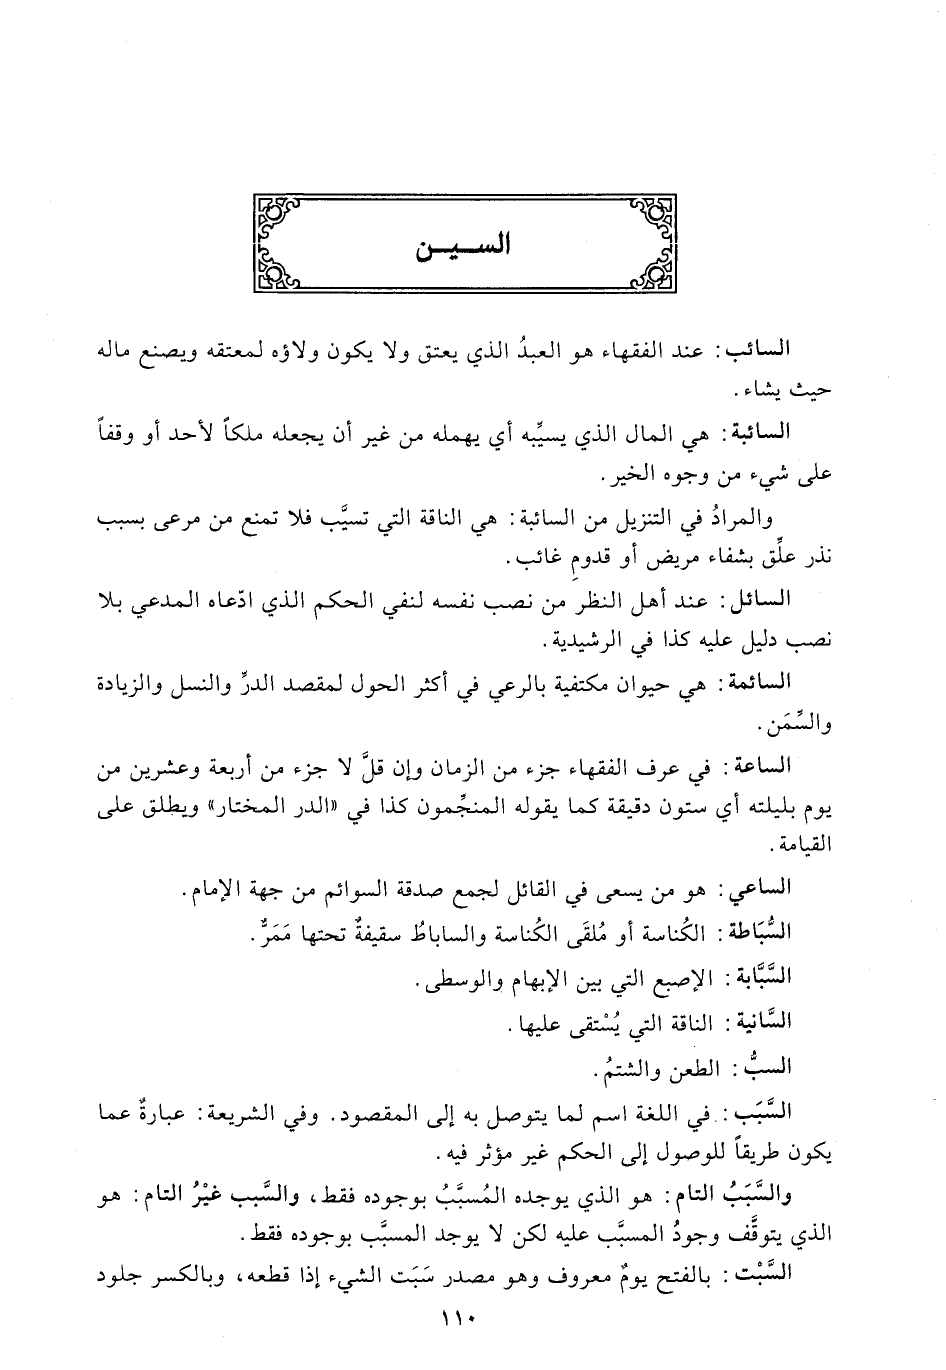 الســيــن
السائب: عند الفقهاء هو العبدُ الذي يعتق ولا يكون ولاؤه لمعتقه ويصنع ماله
حيث يشاء.
السائبة: هي المال الذي يسيِّبه أي يهمله من غير أن يجعله ملكاً لأحد أو وقفاً
على شيء من وجوه الخير.
والمرادُ في التنزيل من السائبة: هي الناقة التي تسيَّب فلا تمنع من مرعى بسبب
نذر علِّق بشفاء مريض أو قدومِ غائب.
السائل: عند أهل النظر من نصب نفسه لنفي الحكم الذي ادّعاه المدعي بلا
نصب دليل عليه كذا في الرشيدية.
السائمة: هي حيوان مكتفية بالرعي في أكثر الحول لمقصد الدرِّ والنسل والزيادة
والسِّمَن.
الساعة: في عرف الفقهاء جزء من الزمان وإن قلَّ لا جزء من أربعة وعشرين من
يوم بليلته أي ستون دقيقة كما يقوله المنجِّمون كذا في «الدر المختار» ويطلق على
القيامة.
الساعي: هو من يسعى في القائل لجمع صدقة السوائم من جهة الإمام.
السُّبَاطة: الكُناسة أو مُلقَى الكُناسة والساباطُ سقيفةٌ تحتها مَمَرٌّ.
السَّبَّابة: الإصبع التي بين الإبهام والوسطى.
السَّانية: الناقة التي يُسْتقى عليها.
السبُّ: الطعن والشتمُ.
السَّبَب: في اللغة اسم لما يتوصل به إلى المقصود. وفي الشريعة: عبارةٌ عما
يكون طريقاً للوصول إلى الحكم غير مؤثر فيه.
والسَّبَبُ التام: هو الذي يوجده المُسبَّبُ بوجوده فقط، والسَّبب غيْرُ التام: هو
الذي يتوقَّف وجودُ المسبَّب عليه لكن لا يوجد المسبَّب بوجوده فقط.
السَّبْت: بالفتح يومٌ معروف وهو مصدر سَبَت الشيء إذا قطعه، وبالكسر جلود
١١٠